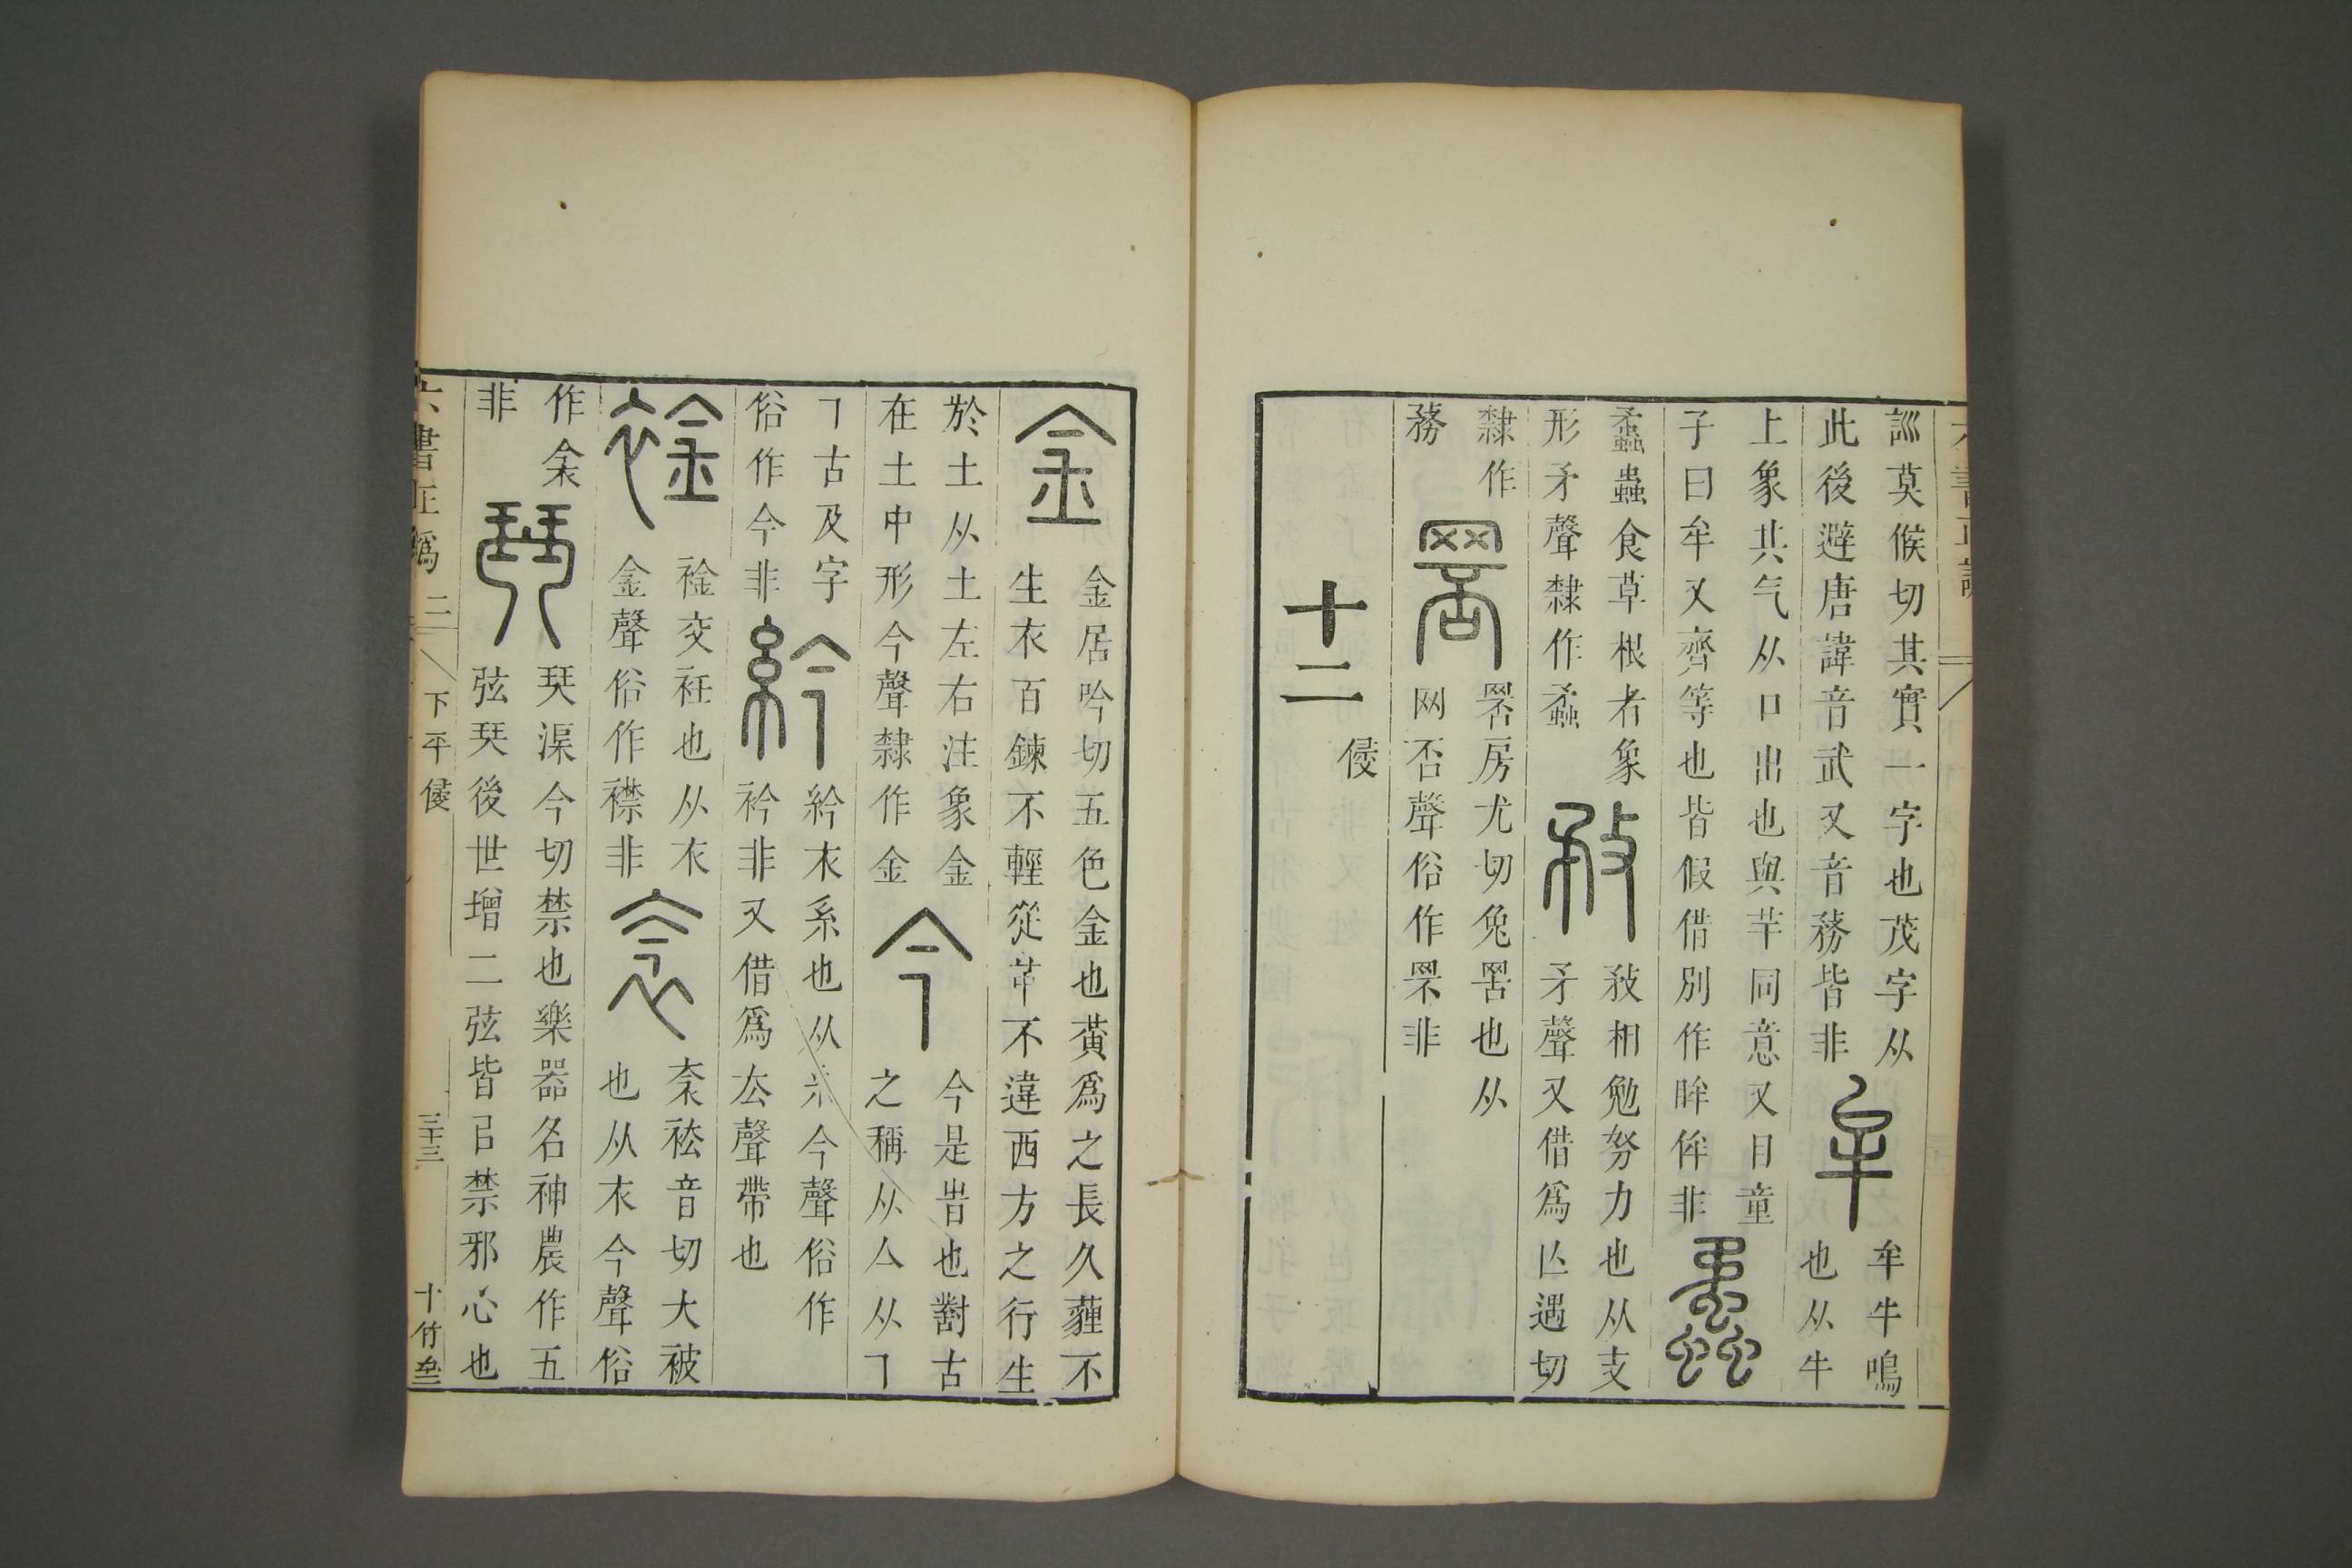 訟莫候切其實一字也茂字从
此後避唐諱音武又音務皆非
牟
牟牛鳴
也从牛
上象其气从口出也與芈同意又目童
子曰牟又齊等也皆假借別作眸侔非
蟊
蟊蟲食草根者象
形矛聲隸作蟊
敄
敄相勉努力也从攴
矛聲又借爲亾遇切
隸作
務
罟房尤切兔罟也从
网否聲俗作罘非
十二
侵
金
金居吟切五色金也黃爲之長久薶不
生衣百鍊不輕從革不違西方之行生
於土从土左右注象金
在土中形今聲隸作金
今
今是旹也對古
之稱从亼从㇕
㇕古及字
俗作今非
紟
紟衣系也从糸今聲俗作
衿非又借爲厺聲帶也
䘳
䘳交衽也从衣
金聲俗作襟非
衾
衾衳音切大被
也从衣今聲俗
作衾
非
琴
珡渠今切禁也樂器名神農作五
弦珡後世增二弦皆㠯禁邪心也
六書正譌
二
下平侵
三十三
十竹